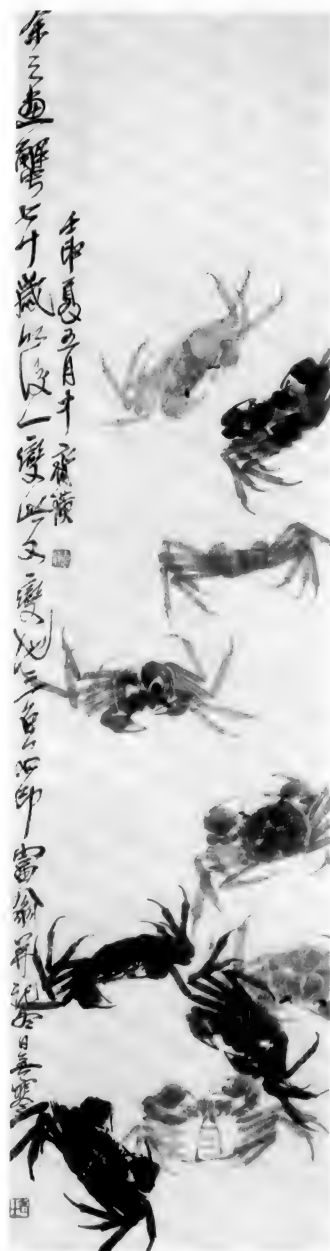 余之画蟹七十歲以後一變此又變也三百石印富翁并記
壬申夏五月十 齊璜